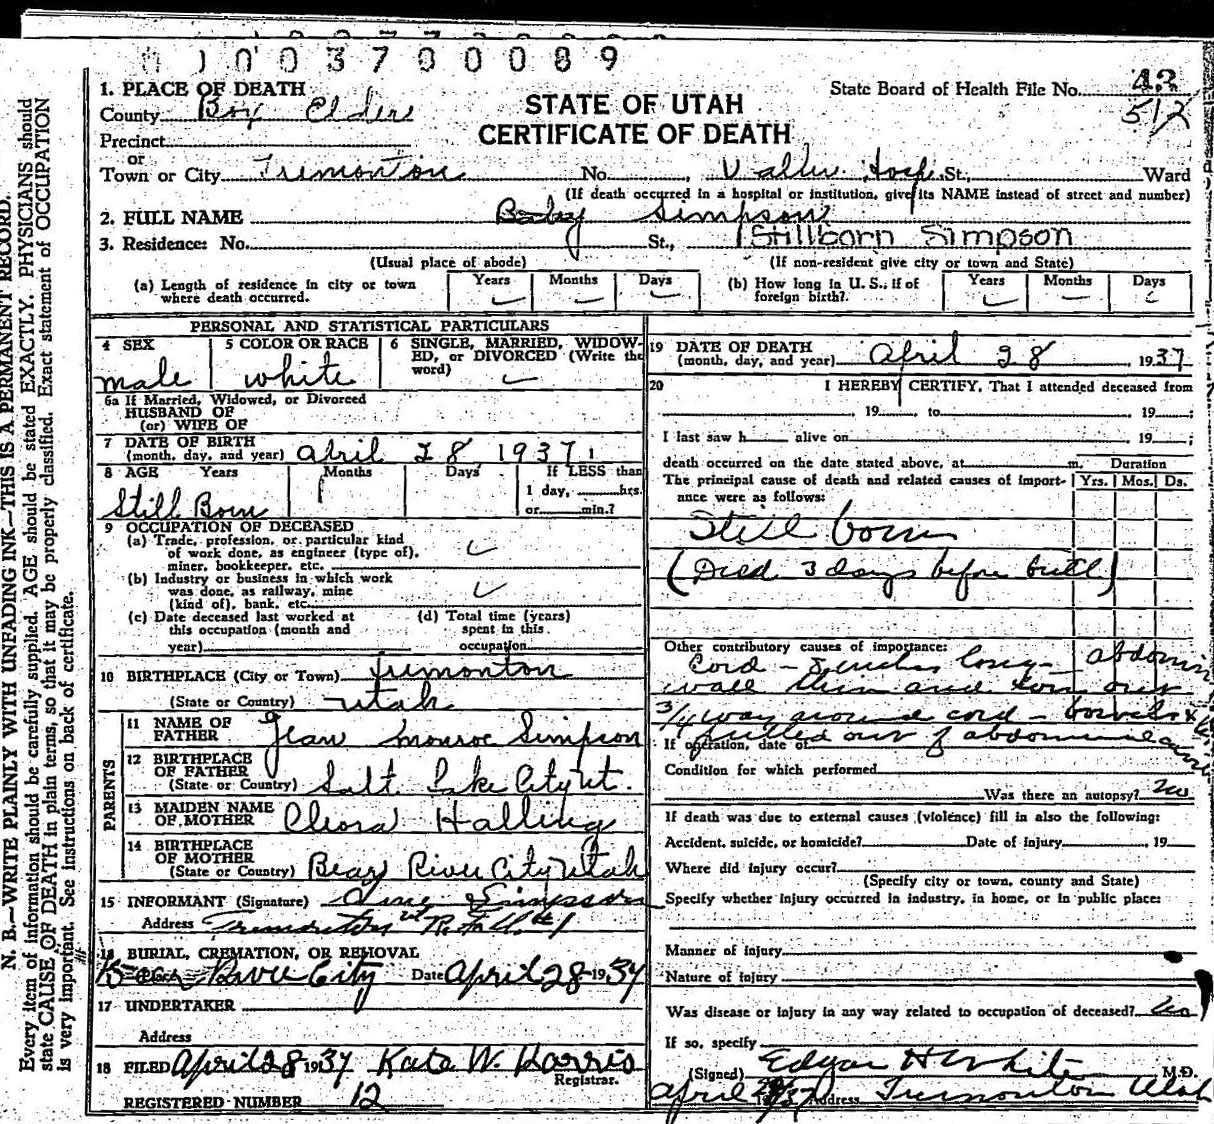 0 0 3 7 0 0 0 8 9
1. PLACE OF DEATH
County Box Elder
State Board of Health File No. 43
512
STATE OF UTAH
CERTIFICATE OF DEATH
Precinct
or
Town or City Tremonton No. Valley Hosp. St., Ward
(If death occurred in a hospital or institution, give its NAME instead of street and number)
2. FULL NAME Baby Simpson
3. Residence: No. St., Stillborn Simpson
(Usual place of abode) (If non-resident give city or town and State)
(a) Length of residence in city or town where death occurred. Years Months Days
(b) How long in U. S., if of foreign birth? Years Months Days
PERSONAL AND STATISTICAL PARTICULARS
4 SEX male
5 COLOR OR RACE white
6 SINGLE, MARRIED, WIDOWED, or DIVORCED (Write the word)
6a If Married, Widowed, or Divorced
HUSBAND OF
(or) WIFE OF
7 DATE OF BIRTH
(month, day, and year) April 28 1937
8 AGE Years Months Days If LESS than
1 day, hrs.
or min.?
Still Born
9 OCCUPATION OF DECEASED
(a) Trade, profession, or particular kind
of work done, as engineer (type of),
miner, bookkeeper, etc.
(b) Industry or business in which work
was done, as railway, mine
(kind of), bank, etc.
(c) Date deceased last worked at
this occupation (month and
year)
(d) Total time (years)
spent in this
occupation
10 BIRTHPLACE (City or Town) Tremonton
(State or Country) Utah
PARENTS
11 NAME OF
FATHER Glean Monroe Simpson
12 BIRTHPLACE
OF FATHER
(State or Country) Salt Lake City Ut.
13 MAIDEN NAME
OF MOTHER Cleora Halling
14 BIRTHPLACE
OF MOTHER
(State or Country) Bear River City Utah
15 INFORMANT (Signature) Simpson
Address Tremonton
16 BURIAL, CREMATION, OR REMOVAL
Bear River City Date April 28 1937
17 UNDERTAKER
Address
18 FILED April 28 1937 Kate W. Harris
Registrar.
REGISTERED NUMBER 12
19 DATE OF DEATH
(month, day, and year) April 28 1937
20 I HEREBY CERTIFY, That I attended deceased from
, 19 , to , 19 ;
I last saw h alive on , 19 ;
death occurred on the date stated above, at m. Duration
The principal cause of death and related causes of importance were as follows: Yrs. Mos. Ds.
Still born
(Died 3 days before birth)
Other contributory causes of importance:
Cord - inches long - abdomin
wall thin and torn out
3/4 way around cord - bowels
pulled out of abdominal
If operation, date of
Condition for which performed
Was there an autopsy? no
If death was due to external causes (violence) fill in also the following:
Accident, suicide, or homicide? Date of injury 19
Where did injury occur?
(Specify city or town, county and State)
Specify whether injury occurred in industry, in home, or in public place:
Manner of injury
Nature of injury
Was disease or injury in any way related to occupation of deceased? no
If so, specify
(Signed) Edgar H White M.D.
April 28/37 Address Tremonton Utah
N. B.—WRITE PLAINLY WITH UNFADING INK—THIS IS A PERMANENT RECORD.
Every item of information should be carefully supplied. AGE should be stated EXACTLY. PHYSICIANS should
state CAUSE OF DEATH in plain terms, so that it may be properly classified. Exact statement of OCCUPATION
is very important. See instructions on back of certificate.